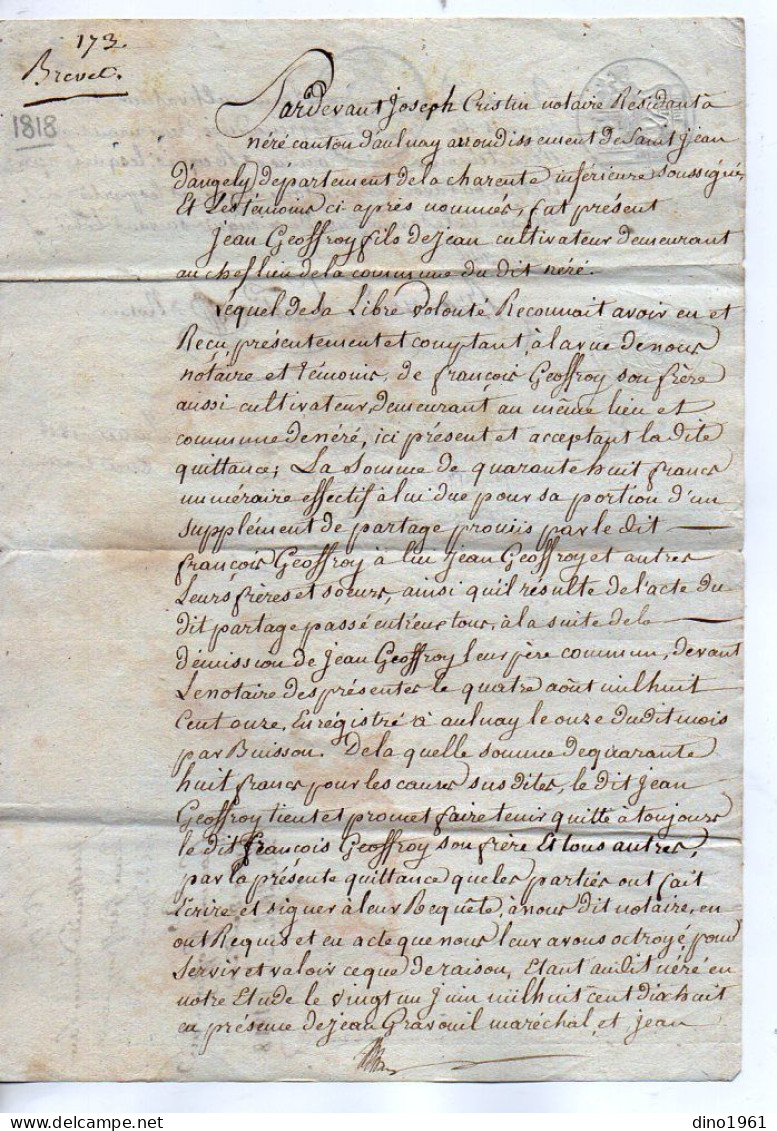 173.
Brevet.
1818
Pardevant Joseph Cristin notaire Résidant à
néré canton d'aulnay arrondissement de Saint Jean
d'angely, département de la charente inférieure soussigné,
Et Les témoins ci après nommés, fut présent
Jean Geoffroy fils de jean cultivateur demeurant
au chef lieu de la commune du dit néré.
Lequel de sa Libre Volonté Reconnait avoir eu et
Reçu présentement et comptant, à la vue de nous
notaire et témoins, de françois Geoffroy son frère
aussi cultivateur, demeurant au même lieu et
commune de néré, ici présent et acceptant la dite
quittance; La Somme de quarante huit francs
numéraire effectif à lui due pour sa portion d'un
supplément de partage promis par le dit
françois Geoffroy à lui Jean Geoffroy et autres
Leurs frères et sœurs, ainsi qu'il résulte de l'acte du
dit partage passé entr'eux tous, à la suite de la
démission de Jean Geoffroy leur père commun, devant
Le notaire des présentes le quatre août mil huit
Cent onze, Enrégistré à aulnay le onze du dit mois
par Buisson. De la quelle somme de quarante
huit francs pour les causes sus dites, le dit Jean
Geoffroy tient et promet faire tenir quitte à toujours
le dit françois Geoffroy son frère Et tous autres,
par la présente quittance que les parties ont fait
Ecrire et signer à leur Requête, à nous dit notaire, en
ont Requis et eu acte que nous leur avons octroyé pour
Servir et valoir ce que de raison, Etant au dit néré en
notre Etude le vingt un Juin mil huit cent dix huit
en présence de jean Gravouil maréchal, et jean
dino1961